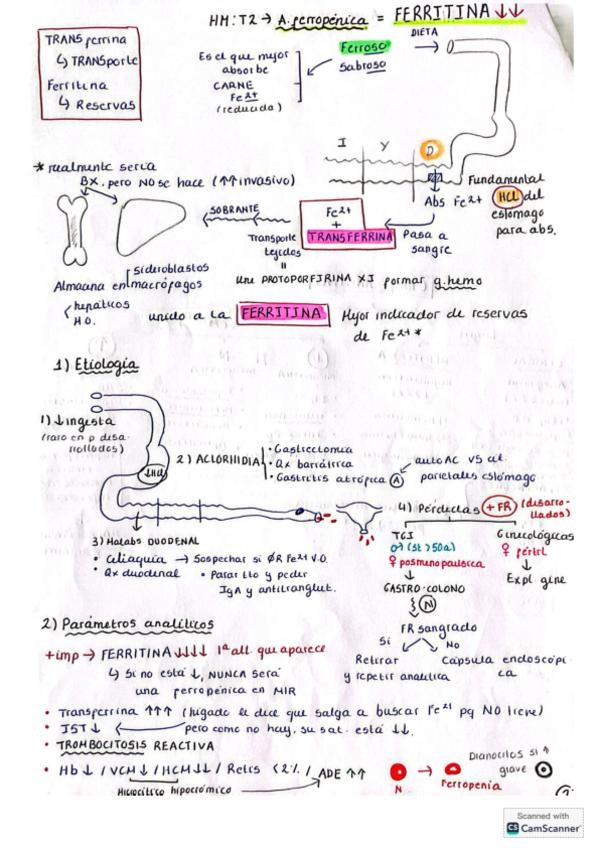 HM: T2 → A. ferropénica = FERRITINA ↓↓
TRANSferrina
↳ TRANSporte
Ferritina
↳ Reservas
Es el que mejor
absorbe
CARNE
Fe2+
(reducida)
Ferroso
Sabroso
DIETA
I Y D
* realmente sería
BX, pero NO se hace (↑↑ invasivo)
Fundamental
HCl del
estómago
para abs.
Abs Fe2+
Fe2+
+
TRANSFERRINA
Pasa a
sangre
SOBRANTE
Transporte
tejidos
=
une PROTOPORFIRINA XI formar g. hemo
Almacena en
sideroblastos
macrófagos
hepáticos
M.O.
unido a la FERRITINA
Mejor indicador de reservas
de Fe2+ *
1) Etiología
1) ↓ ingesta
(raro en p desa-
rrollados)
↓HCl
2) ACLORHIDIA
• Gastrectomía
• Qx bariátrica
• Gastritis atrófica A
autoAC vs cél.
parietales estómago
3) Malabs DUODENAL
• Celiaquía → Sospechar si ØR Fe2+ V.O.
• Qx duodenal
• Parar tto y pedir
IgA y antitranglut.
4) Pérdidas +FR (desarro-
llados)
TGI
♂ (st >50a)
♀ posmenopausica
↓
GASTRO-COLONO
N
Ginecológicas
♀ fértil
↓
Expl. gine
FR sangrado
Si
No
Retirar
y repetir analítica
Cápsula endoscópi
ca
2) Parámetros analíticos
+imp → FERRITINA ↓↓↓↓ 1ª alt. que aparece
↳ Si no está ↓, NUNCA será
una ferropénica en MIR
• Transferrina ↑↑↑ (hígado le dice que salga a buscar Fe2+ pq NO tiene)
• IST ↓ ← pero como no hay, su sat. está ↓↓.
• TROMBOCITOSIS REACTIVA
• Hb ↓ / VCM ↓ / HCM ↓↓ / Retis <2% / ADE ↑↑
Microcítica hipocrómica
N
Ferropenia
Dianocitos si ↑
grave
Scanned with
CS CamScanner